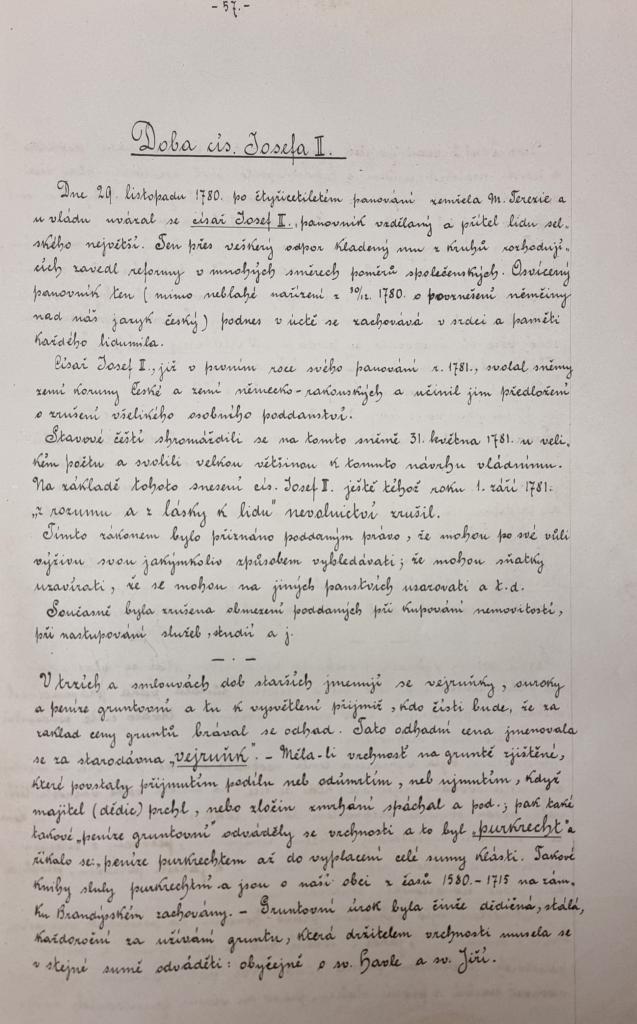 - 57. -
Doba cís. Josefa II.
Dne 29. listopadu 1780. po čtyřicetiletém panování zemřela M. Terezie a
u vládu uvázal se císař Josef II., panovník vzdělaný a přítel lidu sel-
ského největší. Ten přes veškerý odpor kladený mu z kruhů rozhodují-
cích zavedl reformy v mnohých směrech poměrů společenských. Osvícený
panovník ten (mimo neblahé nařízení z 30/12. 1780. o povznešení němčiny
nad náš jazyk český) podnes v úctě se zachovává v srdci a paměti
každého lidumila.
Císař Josef II., již v prvním roce svého panování r. 1781., svolal sněmy
zemí koruny České a zemí německo-rakouských a učinil jim předložení
o zrušení všelikého osobního poddanství.
Stavové čeští shromáždili se na tomto sněmě 31. května 1781. u veli-
kém počtu a svolili velkou většinou k tomuto návrhu vládnímu.
Na základě tohoto snesení cís. Josef II. ještě téhož roku 1. září 1781.
„z rozumu a z lásky k lidu" nevolnictví zrušil.
Tímto zákonem bylo přiznáno poddaným právo, že mohou po své vůli
výživu svou jakýmkoliv způsobem vyhledávati; že mohou sňatky
uzavírati, že se mohou na jiných panstvích usazovati a t.d.
Současně byla zrušena obmezení poddaných při kupování nemovitostí,
při nastupování služeb, studií a j.
V trzích a smlouvách dob starších jmenují se vejruňky, ouroky
a peníze gruntovní a tu k vysvětlení přijmiž, kdo čísti bude, že za
základ ceny gruntů brával se odhad. Tato odhadní cena jmenovala
se za starodávna „vejruňk". - Měla-li vrchnosť na gruntě zjištěné,
které povstaly přijmutím podílu neb odúmrtím, neb ujmutím, když
majitel (dědic) prchl, nebo zločin zmrhání spáchal a pod.; pak také
takové „peníze gruntovní" odváděly se vrchnosti a to byl „purkrecht" a
říkalo se: „peníze purkrechtem až do vyplacení celé sumy klásti. Takové
knihy sluly purkrechtní a jsou o naší obci z časů 1580.-1715 na zám-
ku Brandýsském zachovány. - Gruntovní úrok byla činže dědičná, stálá,
každoroční za užívání gruntu, která držitelem vrchnosti musela se
v stejné sumě odváděti: obyčejně o sv. Havle a sv. Jiří.